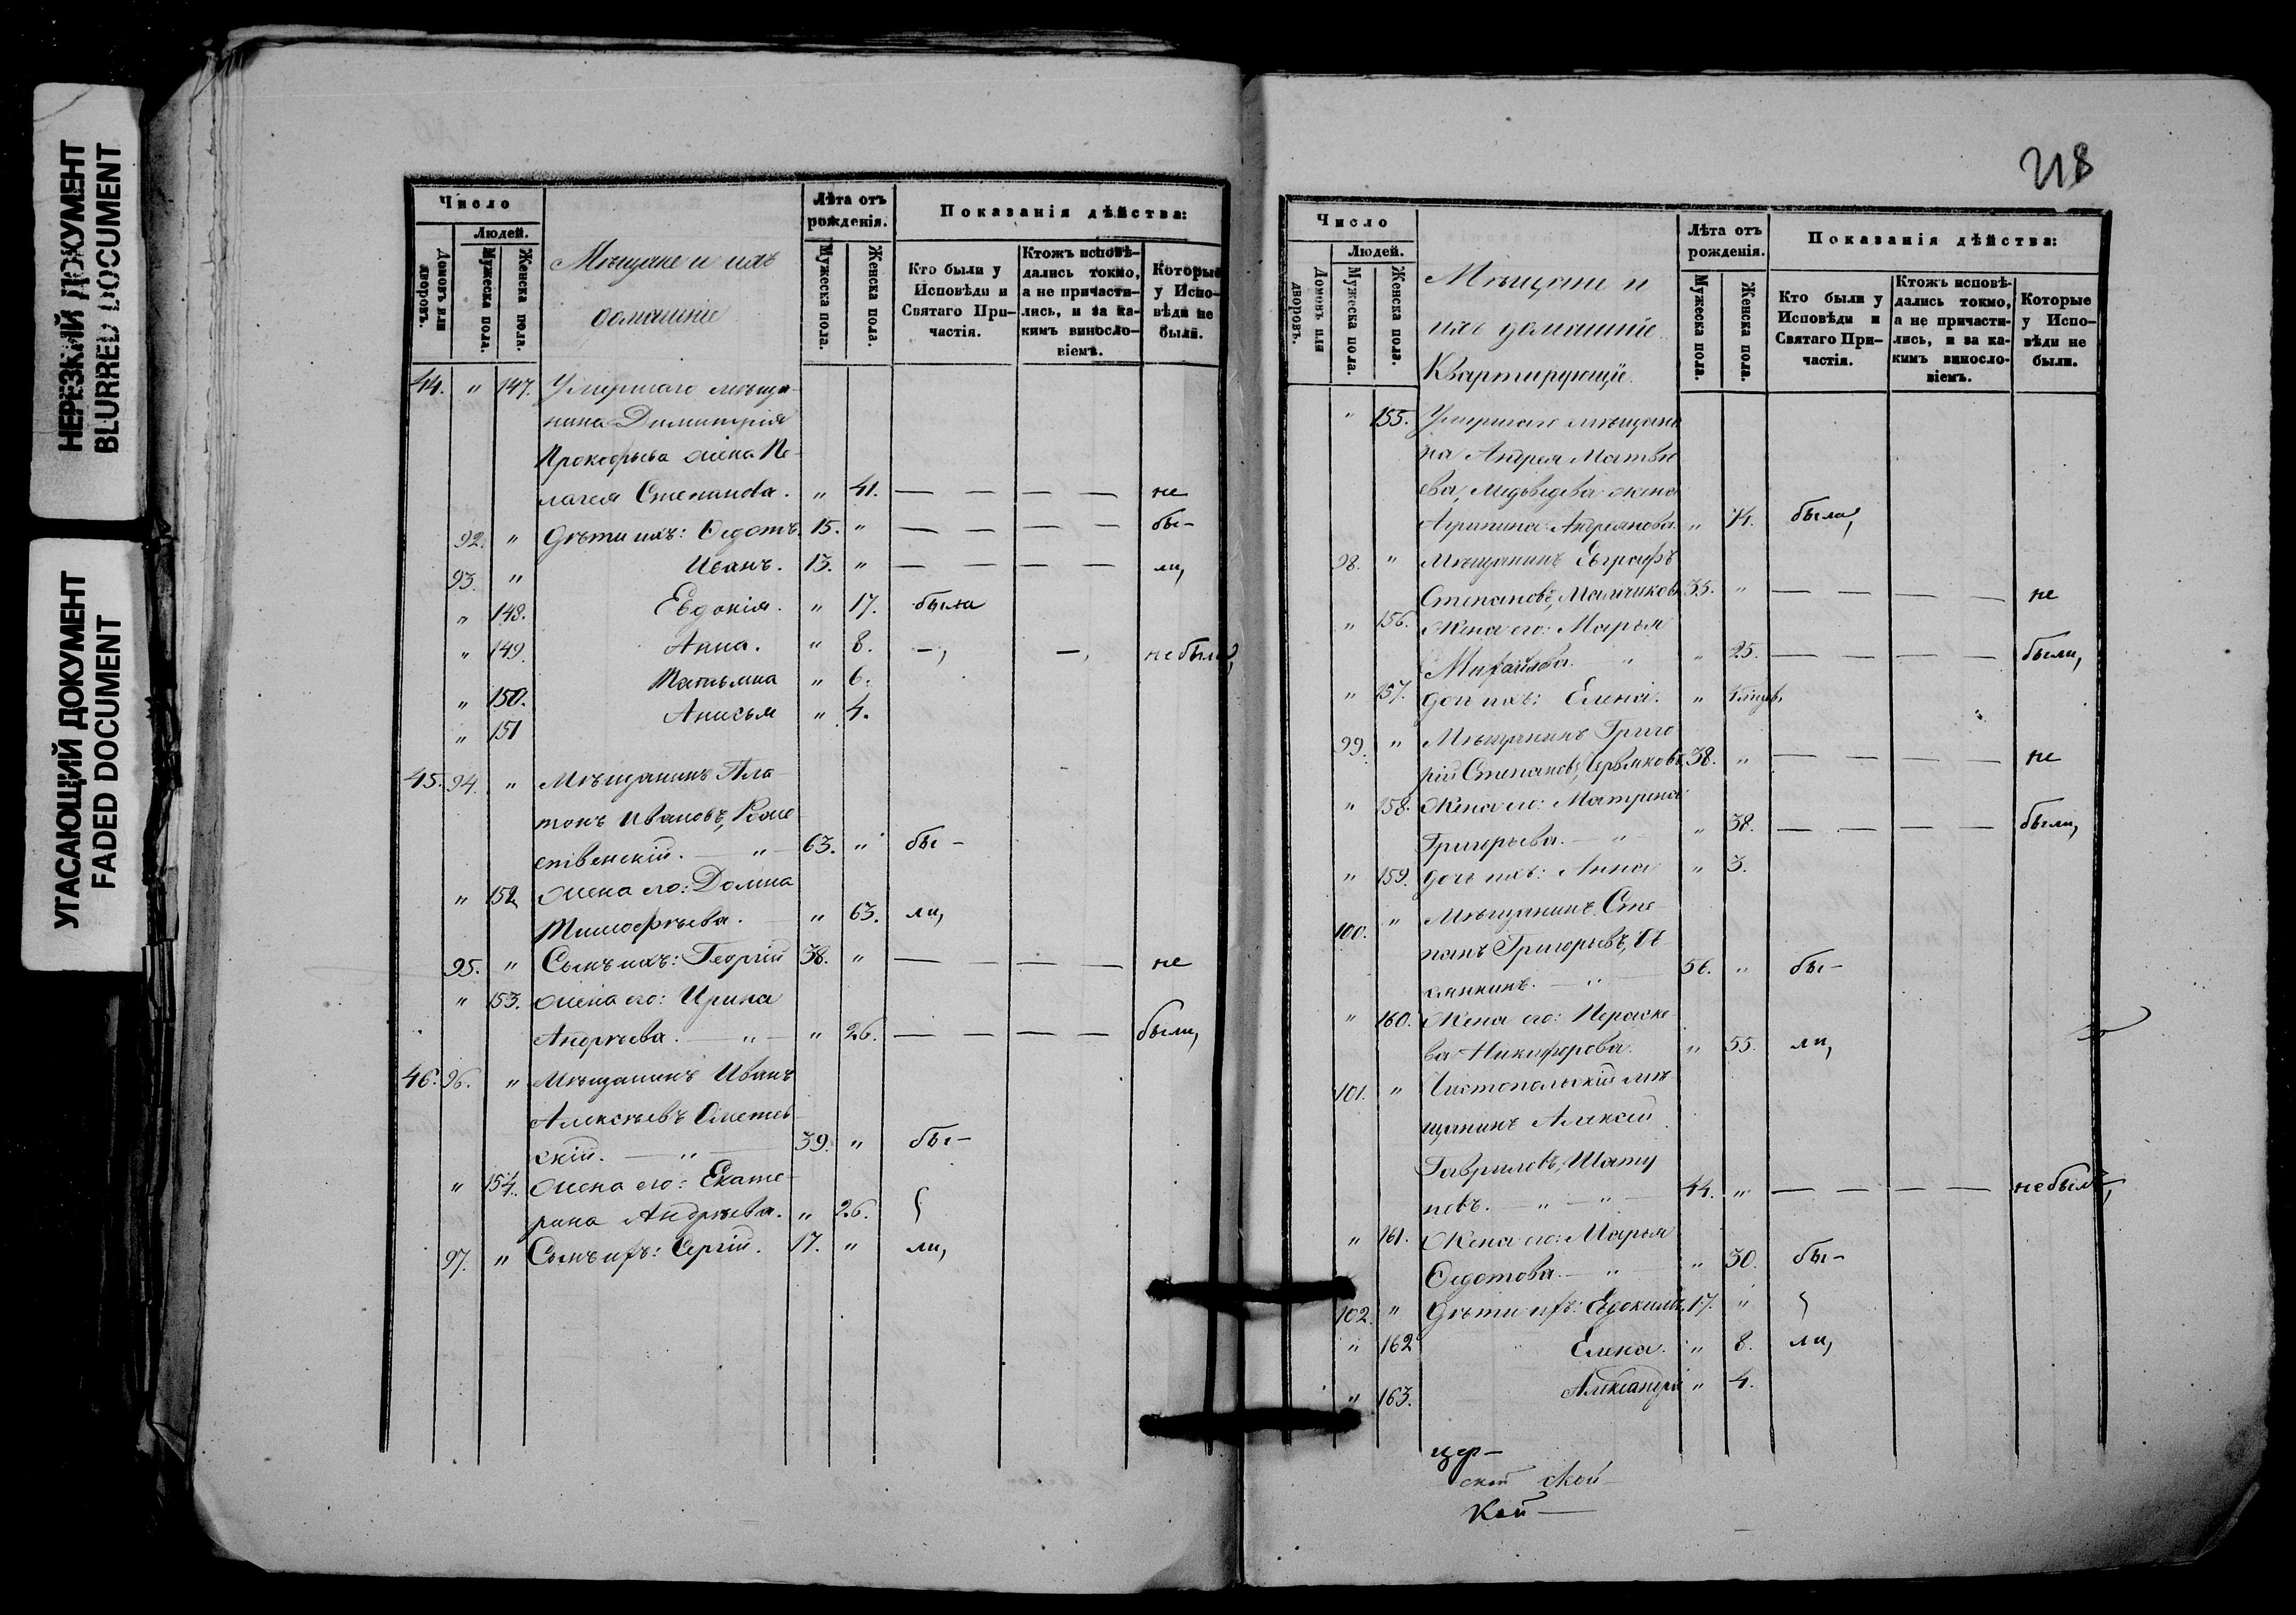 НЕРЕЗКИЙ ДОКУМЕНТ
BLURRED DOCUMENT
УГАСАЮЩИЙ ДОКУМЕНТ
FADED DOCUMENT
Число
Людей.
Домовъ или дворовъ.
Мужеска пола.
Женска пола.
Мѣщане и ихъ
домашніе
Лѣта отъ рожденія.
Мужеска пола.
Женска пола.
Показанія дѣйства:
Кто были у Исповѣди и Святаго Причастія.
Ктожъ исповѣдались токмо, а не причастились, и за какимъ винословіемъ.
Которые у Исповѣди не были.
44. " 147. Умершаго мѣща-
нина Димитрія
Прокофьева жена Пе-
лагея Степанова. " 41. — — — — не
92. " Дѣти ихъ: Ѳедотъ. 15. " — — — — бы-
93. " Иванъ. 13. " — — — — ли,
" 148. Евдокія. " 17. была
" 149. Анна. " 8. —, —, не были,
" 150. Татьяна " 6.
" 151 Анисья " 4.
45. 94. " Мѣщанинъ Пла-
тонъ Ивановъ,
63. " бы-
" 152 Жена его: Домна
Тимофѣева. " 63. ли,
95. " Сынъ ихъ: Георгій 38. " — — — — не
" 153. Жена его: Ирина
Андрѣева. — " — " 26. — — — — были,
46. 96. " Мѣщанинъ Иванъ
Алексѣевъ
скій. — " — 39. " бы-
" 154. Жена его: Екате-
рина Андрѣева. " 26.
97. " Сынъ ихъ: Сергій. 17. " ли,
218
Число
Людей.
Домовъ или дворовъ.
Мужеска пола.
Женска пола.
Мѣщане и
ихъ домашніе
Квартирующіе.
Лѣта отъ рожденія.
Мужеска пола.
Женска пола.
Показанія дѣйства:
Кто были у Исповѣди и Святаго Причастія.
Ктожъ исповѣдались токмо, а не причастились, и за какимъ винословіемъ.
Которые у Исповѣди не были.
" 155. Умершаго мѣщани
на Андрея Матвѣ
ева, Медведева жена
Агрипина Андреянова. " 74. была,
98. " Мѣщанинъ Евграфъ
Степановъ, Мальчиковъ 35. " — — — — не
" 156. Жена его: Марья
Михайлова. " " 25. — — — — были,
" 157. Дочь ихъ: Елена. "
99. " Мѣщанинъ Григо
рій Степановъ, Червяковъ 38. " — — — — не
" 158. Жена его: Матрена
Григорьева. — " " 38. — — — — были,
" 159. Дочь ихъ: Анна " 3.
100. " Мѣщанинъ Сте-
панъ Григорьевъ,
56. " бы-
" 160. Жена его: Параске-
ва Никифорова. " 55. ли,
101. " Чистопольскій мѣ
щанинъ Алексей
Гавриловъ, Шату
новъ. — " — 44. " — — — — не былъ,
" 161. Жена его: Марья
Ѳедотова. — " " 30. бы-
102. " Дѣти ихъ: Евдокимъ. 17. "
" 162 Елена. " 8. ли,
" 163. Александра " 4.
цер-
ской ской
Кой —